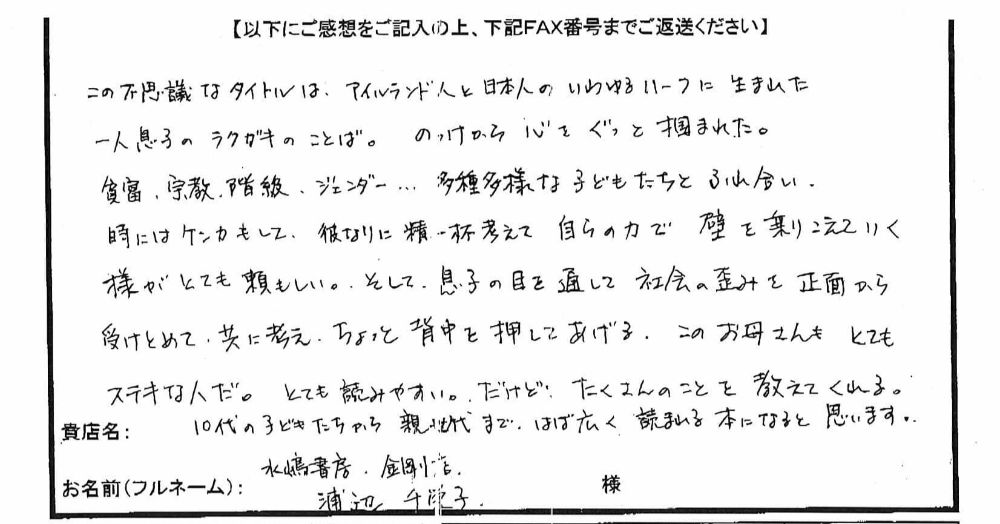 【以下にご感想をご記入の上、下記FAX番号までご返送ください】
この不思議なタイトルは、アイルランド人と日本人のいわゆるハーフに生まれた
一人息子のラクガキのことば。のっけから心をぐっと掴まれた。
貧富、宗教、階級、ジェンダー…多種多様な子どもたちとふれ合い、
時にはケンカもして、彼なりに精一杯考えて自らの力で壁を乗りこえていく
様がとても頼もしい。そして、息子の目を通して社会の歪みを正面から
受けとめて、共に考え、ちょっと背中を押してあげる、このお母さんもとても
ステキな人だ。とても読みやすい。だけど、たくさんのことを教えてくれる。
10代の子どもたちから親世代まで、はば広く読まれる本になると思います。
貴店名：
水嶋書房 金剛店
お名前（フルネーム）：
浦辺 千 子
様